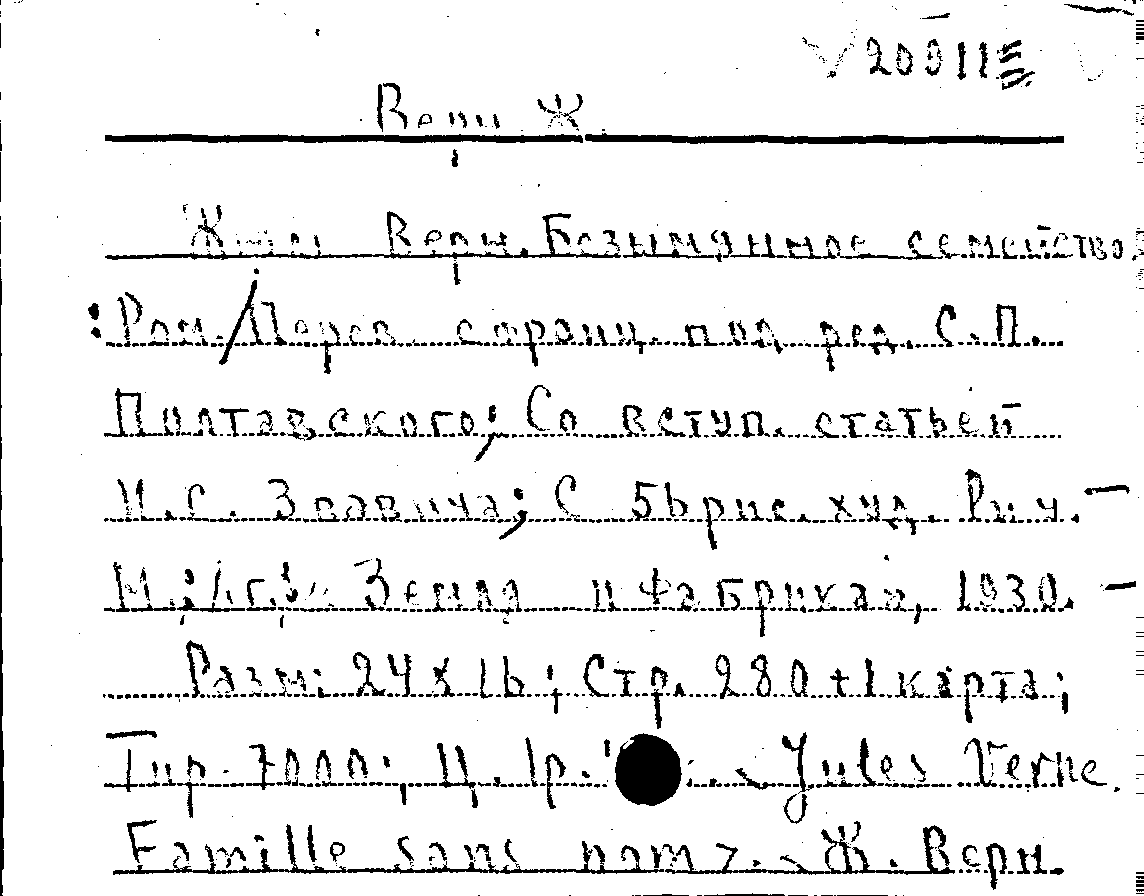 20911
Верн Ж.
Жюль Верн. Безымянное семейство.
: Ром./Перев. с франц. под ред. С.П.
Полтавского; Со вступ. статьей
И.С. Звавича; С 56 рис. худ. Риу. -
М.; Л.: "Земля и Фабрика", 1930. -
Разм: 24х16; Стр. 280+1 карта;
Тир. 7000; Ц. 1р. Jules Verne.
Famille sans nom. Ж. Верн.